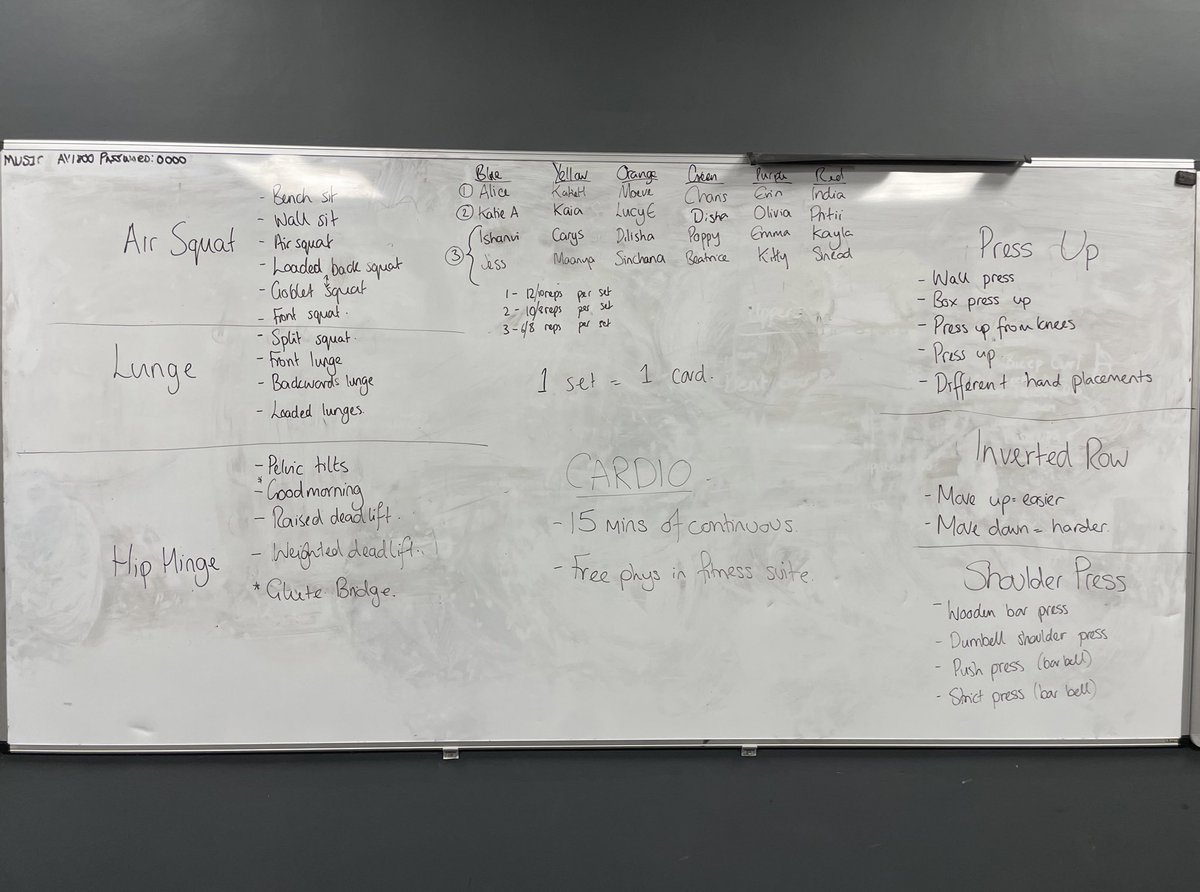 MUSIC AV1200 Password: 0000
Air Squat
- Bench sit
- Wall sit
- Air squat
- Loaded back squat
- Goblet squat
- Front squat.
Lunge
- Split squat.
- Front lunge
- Backwards lunge
- Loaded lunges.
Hip Hinge
- Pelvic tilts
* Goodmorning
- Raised deadlift.
- Weighted deadlift..
* Glute Bridge.
Blue Yellow Orange Green Purple Red
① Alice KatieH Maeve Charis Erin India
② Katie A Kaia Lucy E Disha Olivia
③ Ishanvi Carys Dilisha Poppy Emma Kayla
Jess Maanya Sinchana Beatrice Kitty Sinead
1 - 12/10 reps per set
2 - 10/8 reps per set
3 - 6/8 reps per set
1 set = 1 card.
CARDIO
- 15 mins of continuous.
- Free phys in fitness suite.
Press Up
- Wall press
- Box press up
- Press up from knees
- Press up
- Different hand placements
Inverted Row
- Move up = easier
- Move down = harder.
Shoulder Press
- Wooden bar press
- Dumbell shoulder press
- Push press (bar bell)
- Strict press (bar bell)